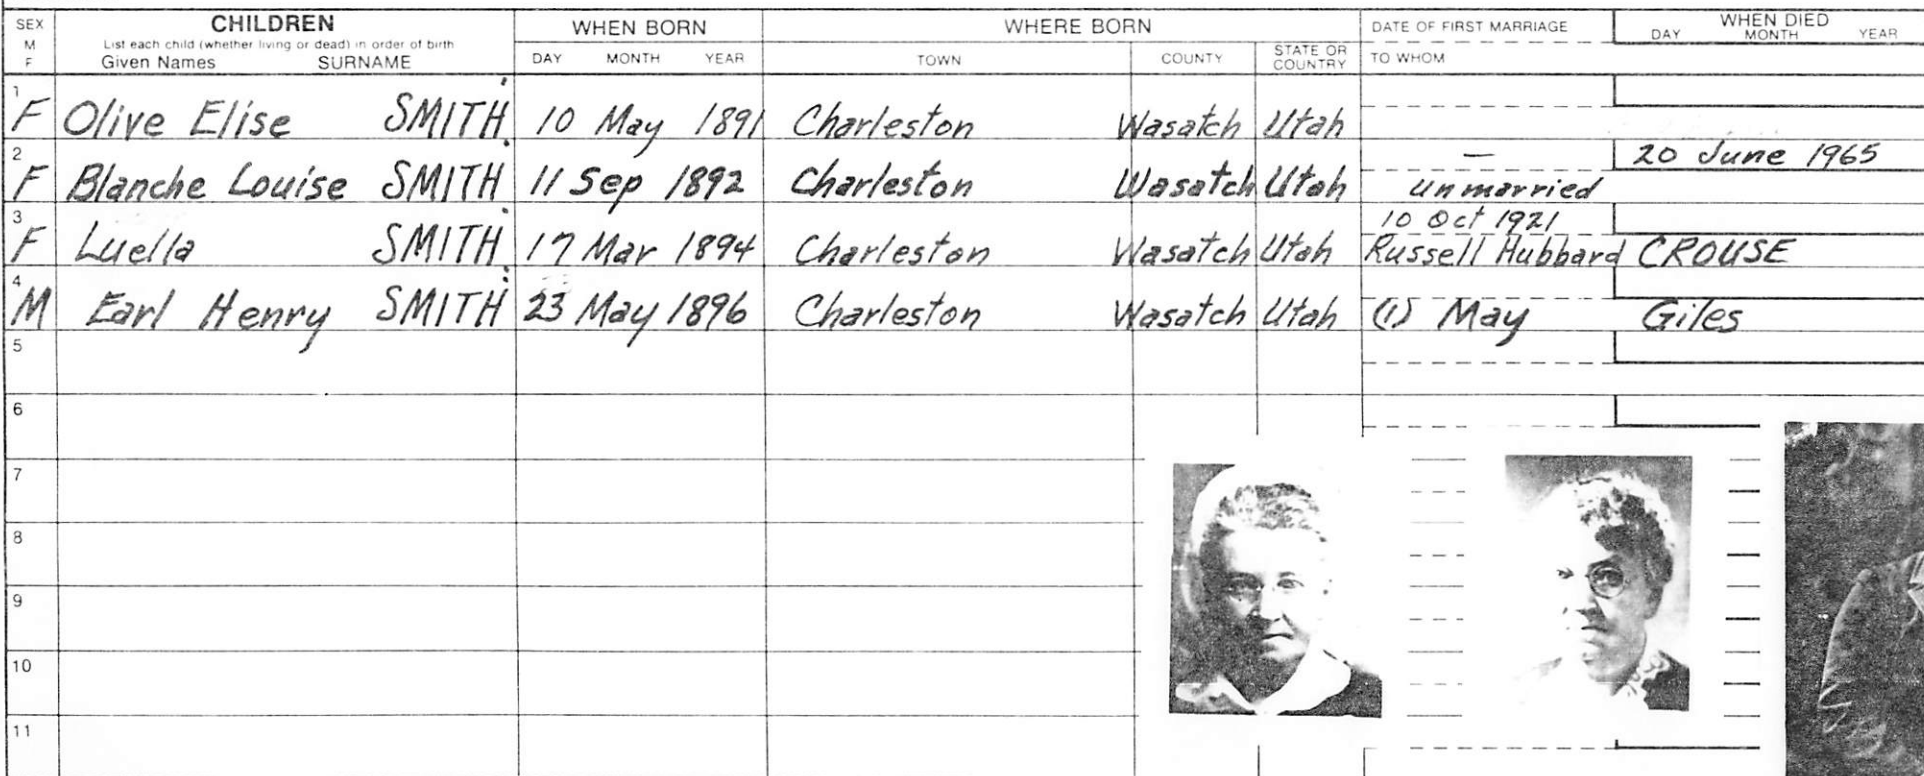 SEX
M
F
CHILDREN
List each child (whether living or dead) in order of birth
Given Names SURNAME
WHEN BORN
DAY MONTH YEAR
WHERE BORN
TOWN COUNTY STATE OR COUNTRY
DATE OF FIRST MARRIAGE
TO WHOM
WHEN DIED
DAY MONTH YEAR
1
F Olive Elise SMITH 10 May 1891 Charleston Wasatch Utah
2
— 20 June 1965
F Blanche Louise SMITH 11 Sep 1892 Charleston Wasatch Utah unmarried
3
10 Oct 1921
F Luella SMITH 17 Mar 1894 Charleston Wasatch Utah Russell Hubbard CROUSE
4
M Earl Henry SMITH 23 May 1896 Charleston Wasatch Utah (1) May Giles
5
6
7
8
9
10
11